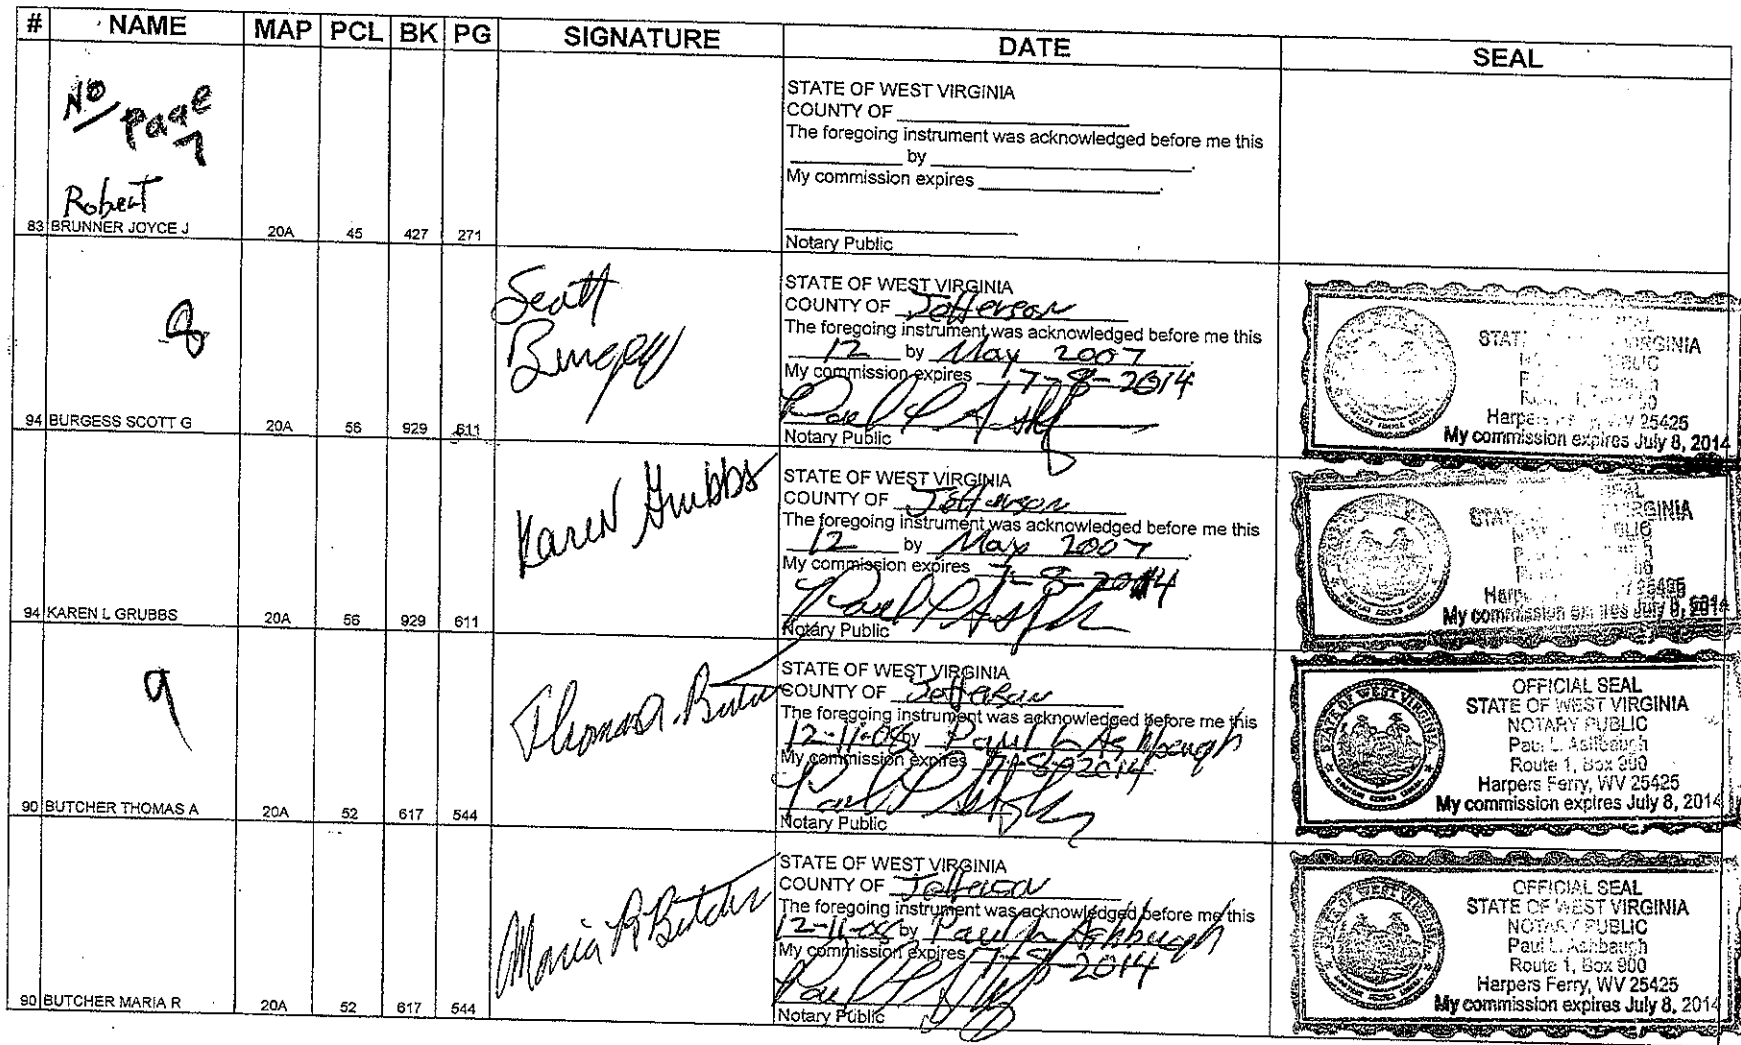 # NAME MAP PCL BK PG SIGNATURE DATE SEAL
NO Page
7
Robert
83 BRUNNER JOYCE J 20A 45 427 271
STATE OF WEST VIRGINIA
COUNTY OF
The foregoing instrument was acknowledged before me this
by
My commission expires
Notary Public
8
94 BURGESS SCOTT G 20A 56 929 611
Scott
Burgess
STATE OF WEST VIRGINIA
COUNTY OF Jefferson
The foregoing instrument was acknowledged before me this
12 by May 2007
My commission expires 7-8-2014
Notary Public
Harpers
25425
My commission expires July 8, 2014
94 KAREN L GRUBBS 20A 56 929 611
Karen Grubbs
STATE OF WEST VIRGINIA
COUNTY OF Jefferson
The foregoing instrument was acknowledged before me this
12 by May 2007
My commission expires 7-8-2014
Notary Public
My commission expires July 8, 2014
9
90 BUTCHER THOMAS A 20A 52 617 544
Thomas A. Butcher
STATE OF WEST VIRGINIA
COUNTY OF Jefferson
The foregoing instrument was acknowledged before me this
12-11-08 by Paul L Ashbaugh
My commission expires 7-8-2014
Notary Public
STATE OF WEST VIRGINIA
OFFICIAL SEAL
STATE OF WEST VIRGINIA
NOTARY PUBLIC
Paul L. Ashbaugh
Route 1, Box 900
Harpers Ferry, WV 25425
My commission expires July 8, 2014
90 BUTCHER MARIA R 20A 52 617 544
Maria R Butcher
STATE OF WEST VIRGINIA
COUNTY OF Jefferson
The foregoing instrument was acknowledged before me this
12-11-08 by Paul L Ashbaugh
My commission expires 7-8-2014
Notary Public
OFFICIAL SEAL
STATE OF WEST VIRGINIA
NOTARY PUBLIC
Paul L. Ashbaugh
Route 1, Box 900
Harpers Ferry, WV 25425
My commission expires July 8, 2014